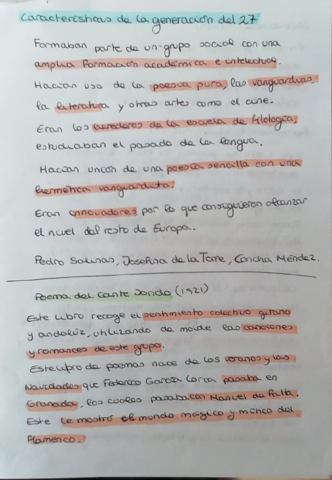 Características de la generación del 27
Formaban parte de un grupo social con una
amplia formación académica e intelectual.
Hacían uso de la poesía pura, las vanguardias,
la literatura y otras artes como el cine.
Eran los herederos de la escuela de filología,
estudiaban el pasado de la lengua.
Hacían unión de una poesía sencilla con una
hermética vanguardista.
Eran innovadores por lo que consiguieron alcanzar
el nivel del resto de Europa.
Pedro Salinas, Josefina de la Torre, Concha Méndez.
Poema del Cante Jondo (1921)
Este libro recoge el sentimiento colectivo gitano
y andaluz, utilizando de molde las canciones
y romances de este grupo.
Este libro de poemas nace de los veranos y las
Navidades que Federico García Lorca pasaba en
Granada, los cuales pasaba con Manuel de Falla.
Este le mostró el mundo mágico y único del
flamenco.